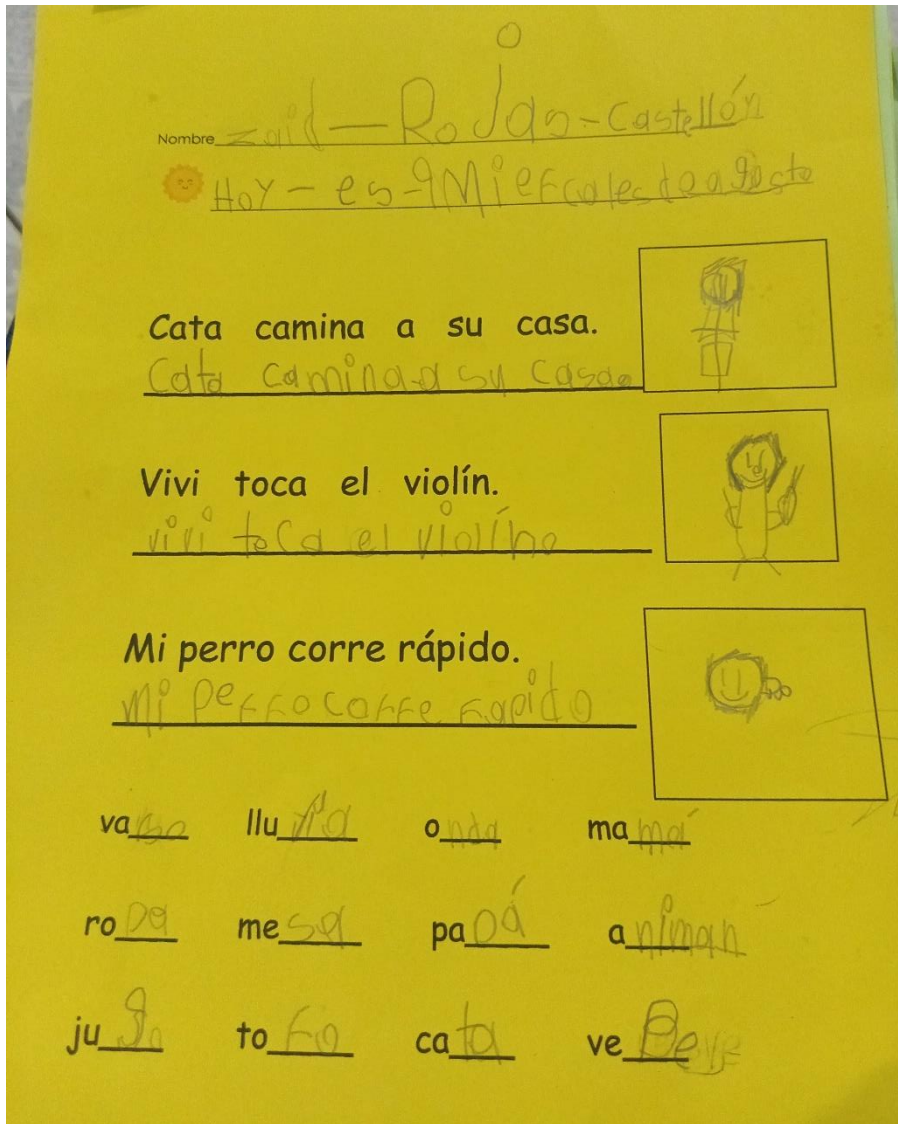 Nombre Zaid - Rojas - Castellón
Hoy - es - 9 Miercoles de agosto
Cata camina a su casa.
Cata camina a su casa.
Vivi toca el violín.
vivi toca el violín.
Mi perro corre rápido.
Mi perro corre rapido
vaso lluvia onda mamá
ropa mesa papá animan
jugo toro cata ve